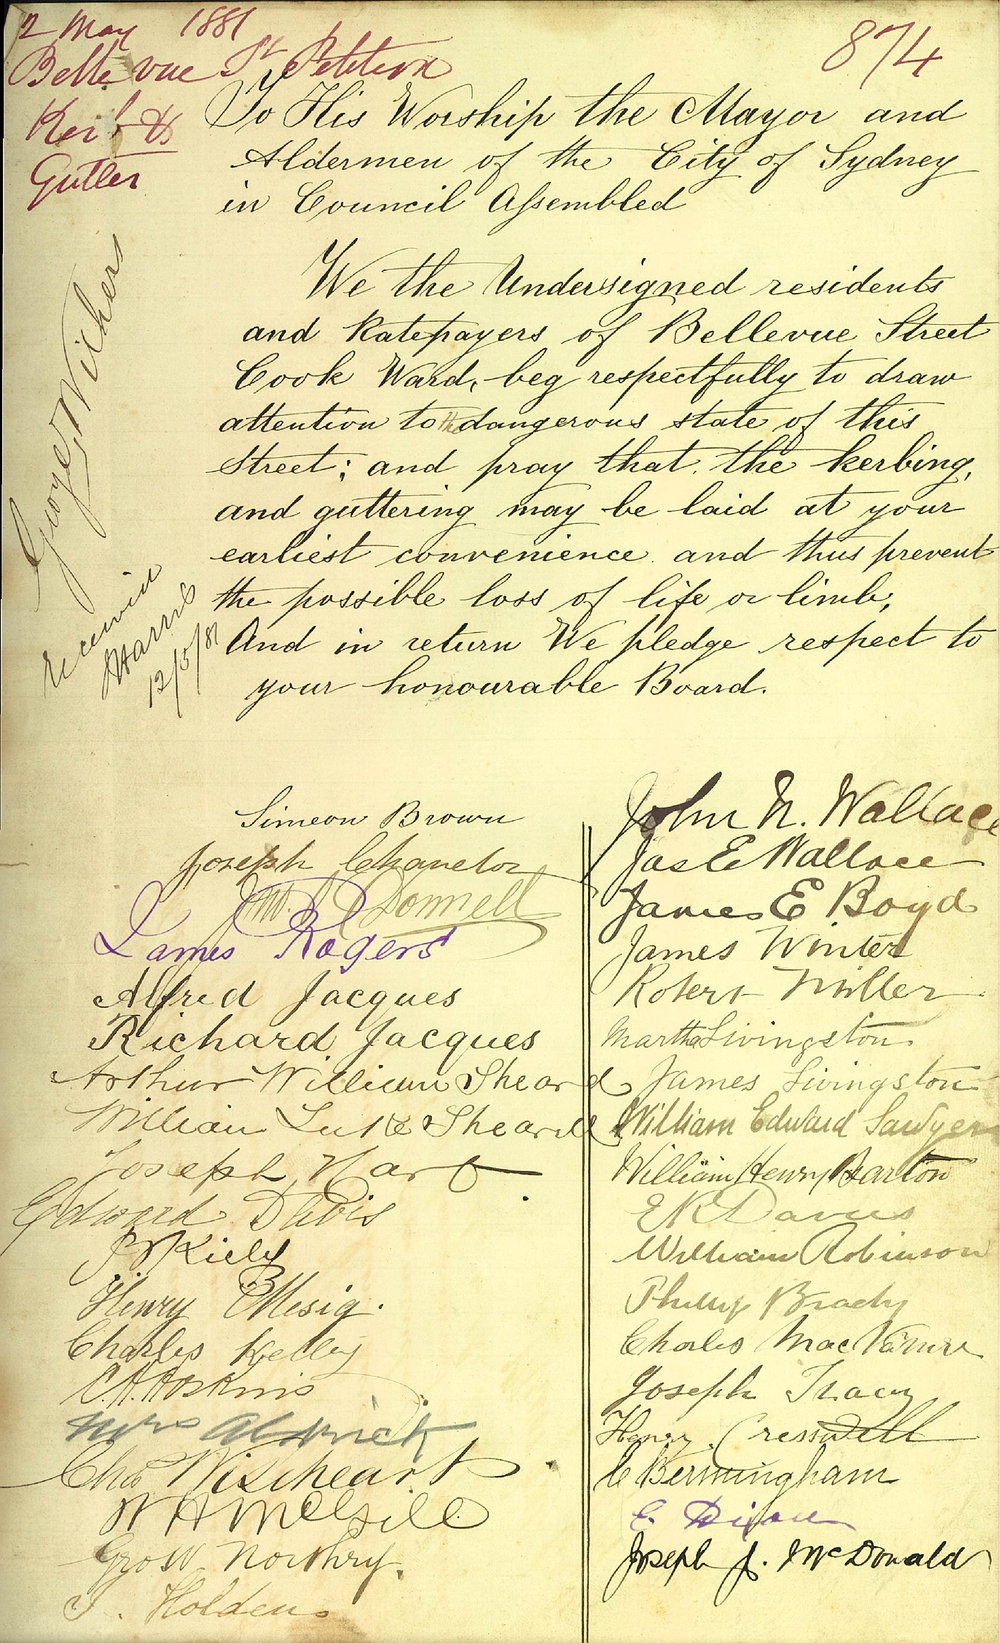 2 May 1881
874
Bellevue St Petition
Kerb &
Gutter
To His Worship the Mayor and
Aldermen of the City of Sydney
in Council Assembled
We the Undersigned residents
and Ratepayers of Bellevue Street
Cook Ward, beg respectfully to draw
attention to the dangerous state of this
Street; and pray that the kerbing,
and guttering may be laid at your
earliest convenience and thus prevent
the possible loss of life or limb,
And in return We pledge respect to
your honourable Board.
George Withers
Harris
12/5/81
Simeon Brown
Joseph Chanelor
Donnell
James Rogers
Alfred Jacques
Richard Jacques
Arthur William Sheard
William Luke Sheard
Joseph Hart
Edward Davis
Kiely
Henry Mesig.
Charles Kelly
C. H. Hoskins
Mrs
Chas Wiseheart
W H McGill
Geo W. Northry.
T. Holden
John N. Wallace
Jas E Wallace
James E Boyd
James Winter
Robert Miller
Martha Livingston
James Livingston
William Edward Sawyer
William Henry Barton
E R Davies
William Robinson
Phillip Brady
Charles
Joseph Tracy
Henry Cresswell
C Bermingham
C. Dixon
Joseph J. McDonald